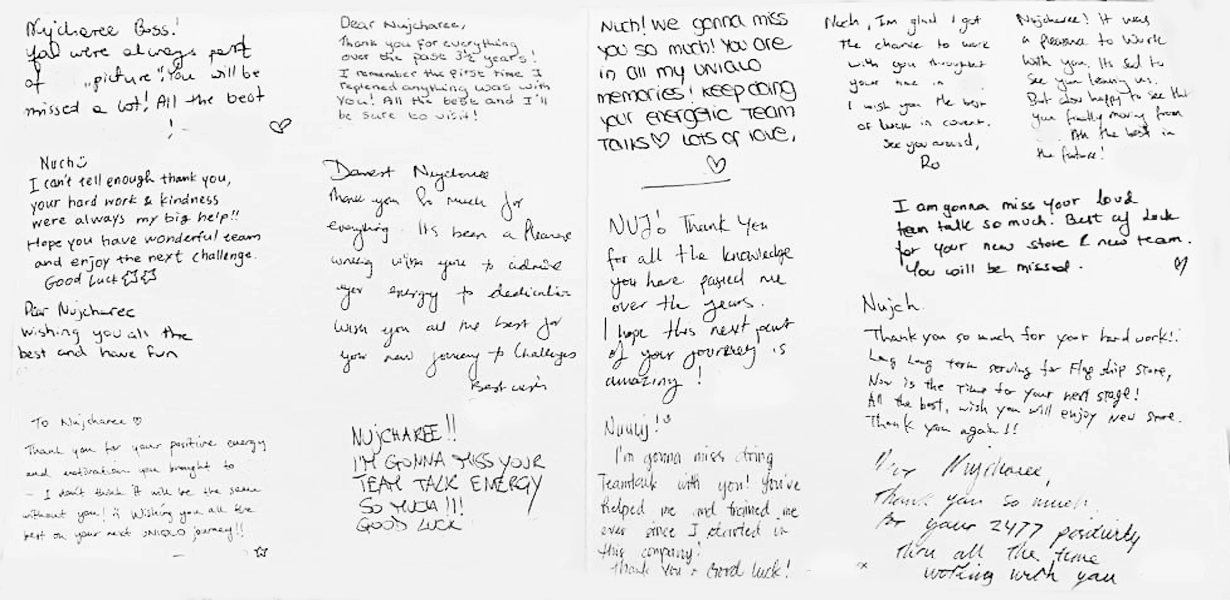 Nujcharee Boss!
You were always part
of "picture". You will be
missed a lot! All the best
!
Nuch
I can't tell enough thank you,
your hard work & kindness
were always my big help!!
Hope you have wonderful team
and enjoy the next challenge.
Good Luck
Dear Nujcharee
wishing you all the
best and have fun
To Nujcharee ♡
Thank you for your positive energy
and motivation you brought to
– I don't think it will be the same
without you! Wishing you all the
best on your next UNIQLO journey!!
Dear Nujcharee,
Thank you for everything
over the past 3½ years!
I remember the first time I
replened anything was with
you! All the best and I'll
be sure to visit!
Dearest Nujcharee
Thank you so much for
everything. It's been a pleasure
working with you & admire
your energy & dedication
Wish you all the best for
your new journey & challenges
Best wish
NUJCHAREE!!
I'M GONNA MISS YOUR
TEAM TALK ENERGY
SO MUCH!!!
GOOD LUCK
Nuch! We gonna miss
you so much! You are
in all my UNIQLO
memories! Keep doing
your energetic Team
Talks♡ Lots of love,
♡
NUJ! Thank You
for all the knowledge
you have passed me
over the years.
I hope this next part
of your journey is
amazing!
I'm gonna miss doing
Teamtalk with you! You've
helped me and trained me
ever since I started in
this company!
Thank you & Good luck!
Nuch, I'm glad I got
the chance to work
with you throughout
your time in
I wish you the best
of luck in covent.
See you around,
Ro
Nujcharee! It was
a pleasure to work
with you. Its sad to
see you leaving us.
But also happy to see that
you finally moving from
All the best in
the future!
I am gonna miss your loud
team talk so much. Best of luck
for your new store & new team.
You will be missed.
Nujch.
Thank you so much for your hard work!!
Long Long term serving for Flag ship store,
Now is the Time for your next stage!
All the best, wish you will enjoy New store.
Thank you again!!
Nujcharee,
Thank you so much
for your 24/7 positivity
thru all the time
working with you